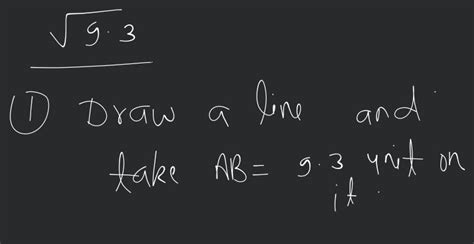 √9.3
① Draw a line and
take AB = 9.3 unit on
it.